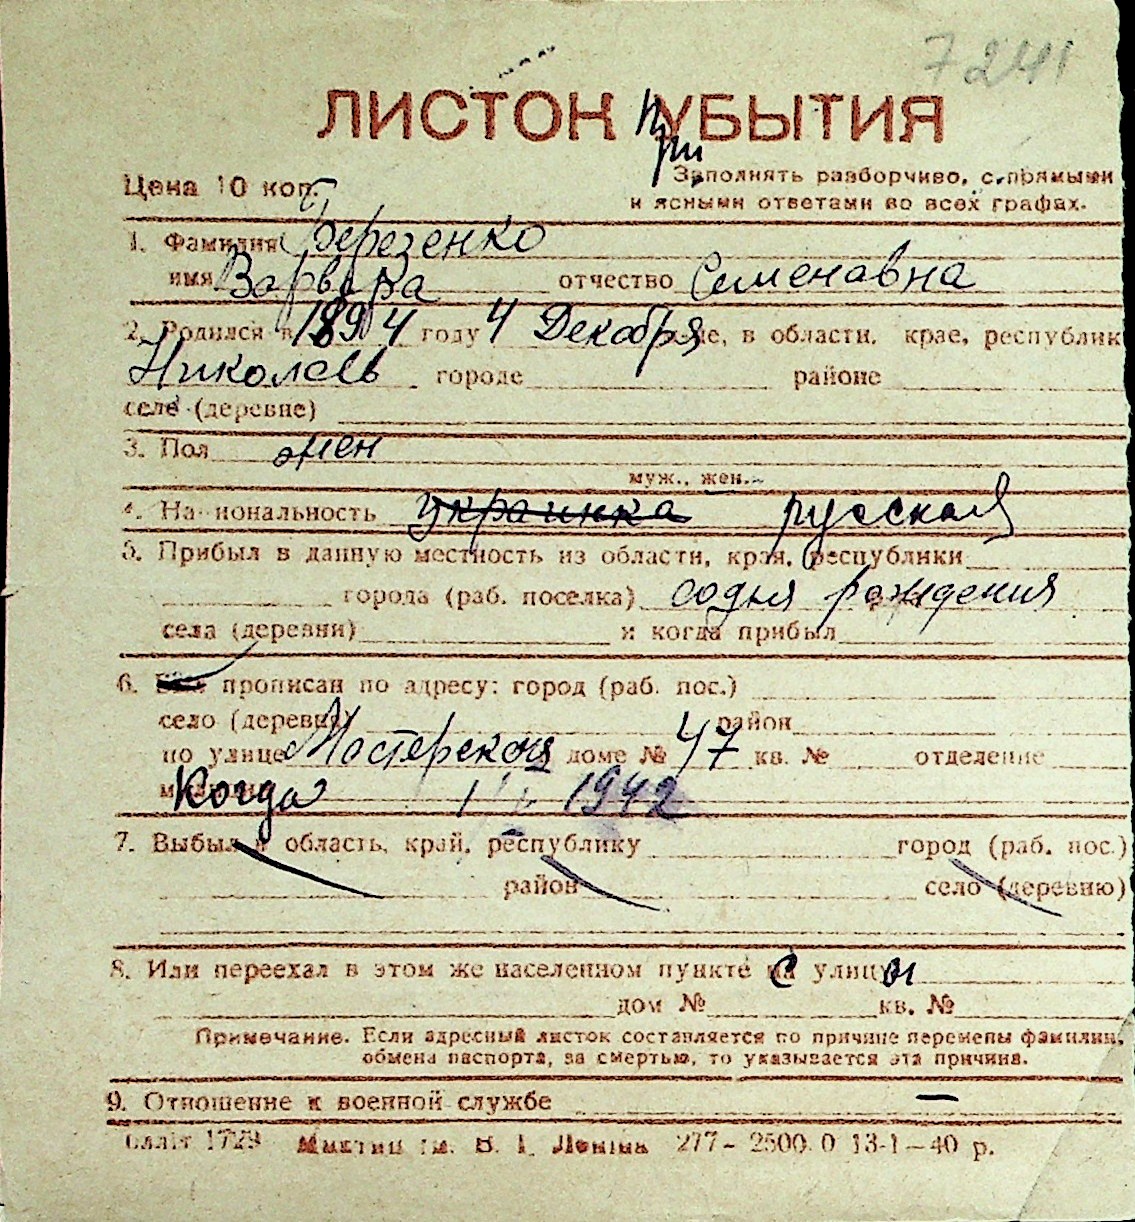 7241
ЛИСТОК УБЫТИЯ
при
Цена 10 коп.
Заполнять разборчиво, с прямыми
и ясными ответами во всех графах.
1. Фамилия Березенко
имя Варвара отчество Семенавна
2. Родился в 1894 году 4 Декабря не, в области, крае, республик
Николаев городе районе
селе (деревне)
3. Пол жен
муж., жен.
4. Национальность украинка русская
5. Прибыл в данную местность из области, края, республики
города (раб. поселка) содня рождения
села (деревни) и когда прибыл
6. прописан по адресу: город (раб. пос.)
село (деревня) район
по улице Мастерской доме № 47 кв. № отделение
Когда 1942
7. Выбыл в область, край, республику город (раб. пос.)
район село (деревню)
8. Или переехал в этом же населенном пункте с улицы
дом № кв. №
Примечание. Если адресный листок составляется по причине перемены фамилии,
обмена паспорта, за смертью, то указывается эта причина.
9. Отношение к военной службе —
1729 В. І. Леніна 277–2500.0 13-1–40 р.